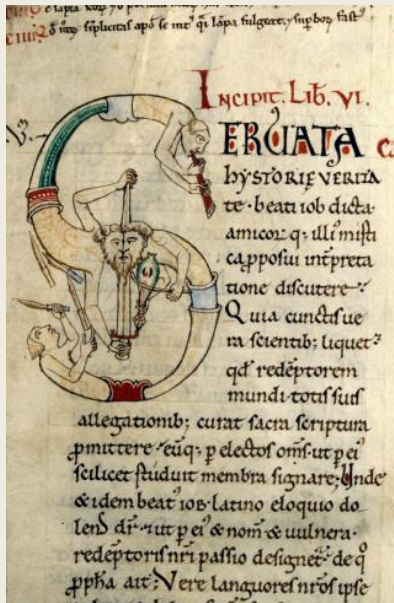 suplicitas apd se int' q̄i lāpa fulgeat; supboꝝ fast'
Incipit. Lib̄. VI.
SERUATA
hystorię verita
te · beati iob dicta
amicoꝝ q; illi' misti
ca ꝓposui int̄preta
tione discutere ·
Quia cunctis ue
ra scientib; liquet
qđ redēptorem
mundi totis suis
allegationib; curat sacra scriptura
ꝓmittere · eūq; ꝑ electos om̄s · ut ꝑ ei'
scilicet studuit membra signare; Unde
& idem beat' iob · latino eloquio do
lens dr̄ · ut ꝑ ei' & nom̄ & uulnera ·
redēptoris nr̄i passio designet' · de q̊
ꝓpħa ait; Vere languores nr̄os ipse